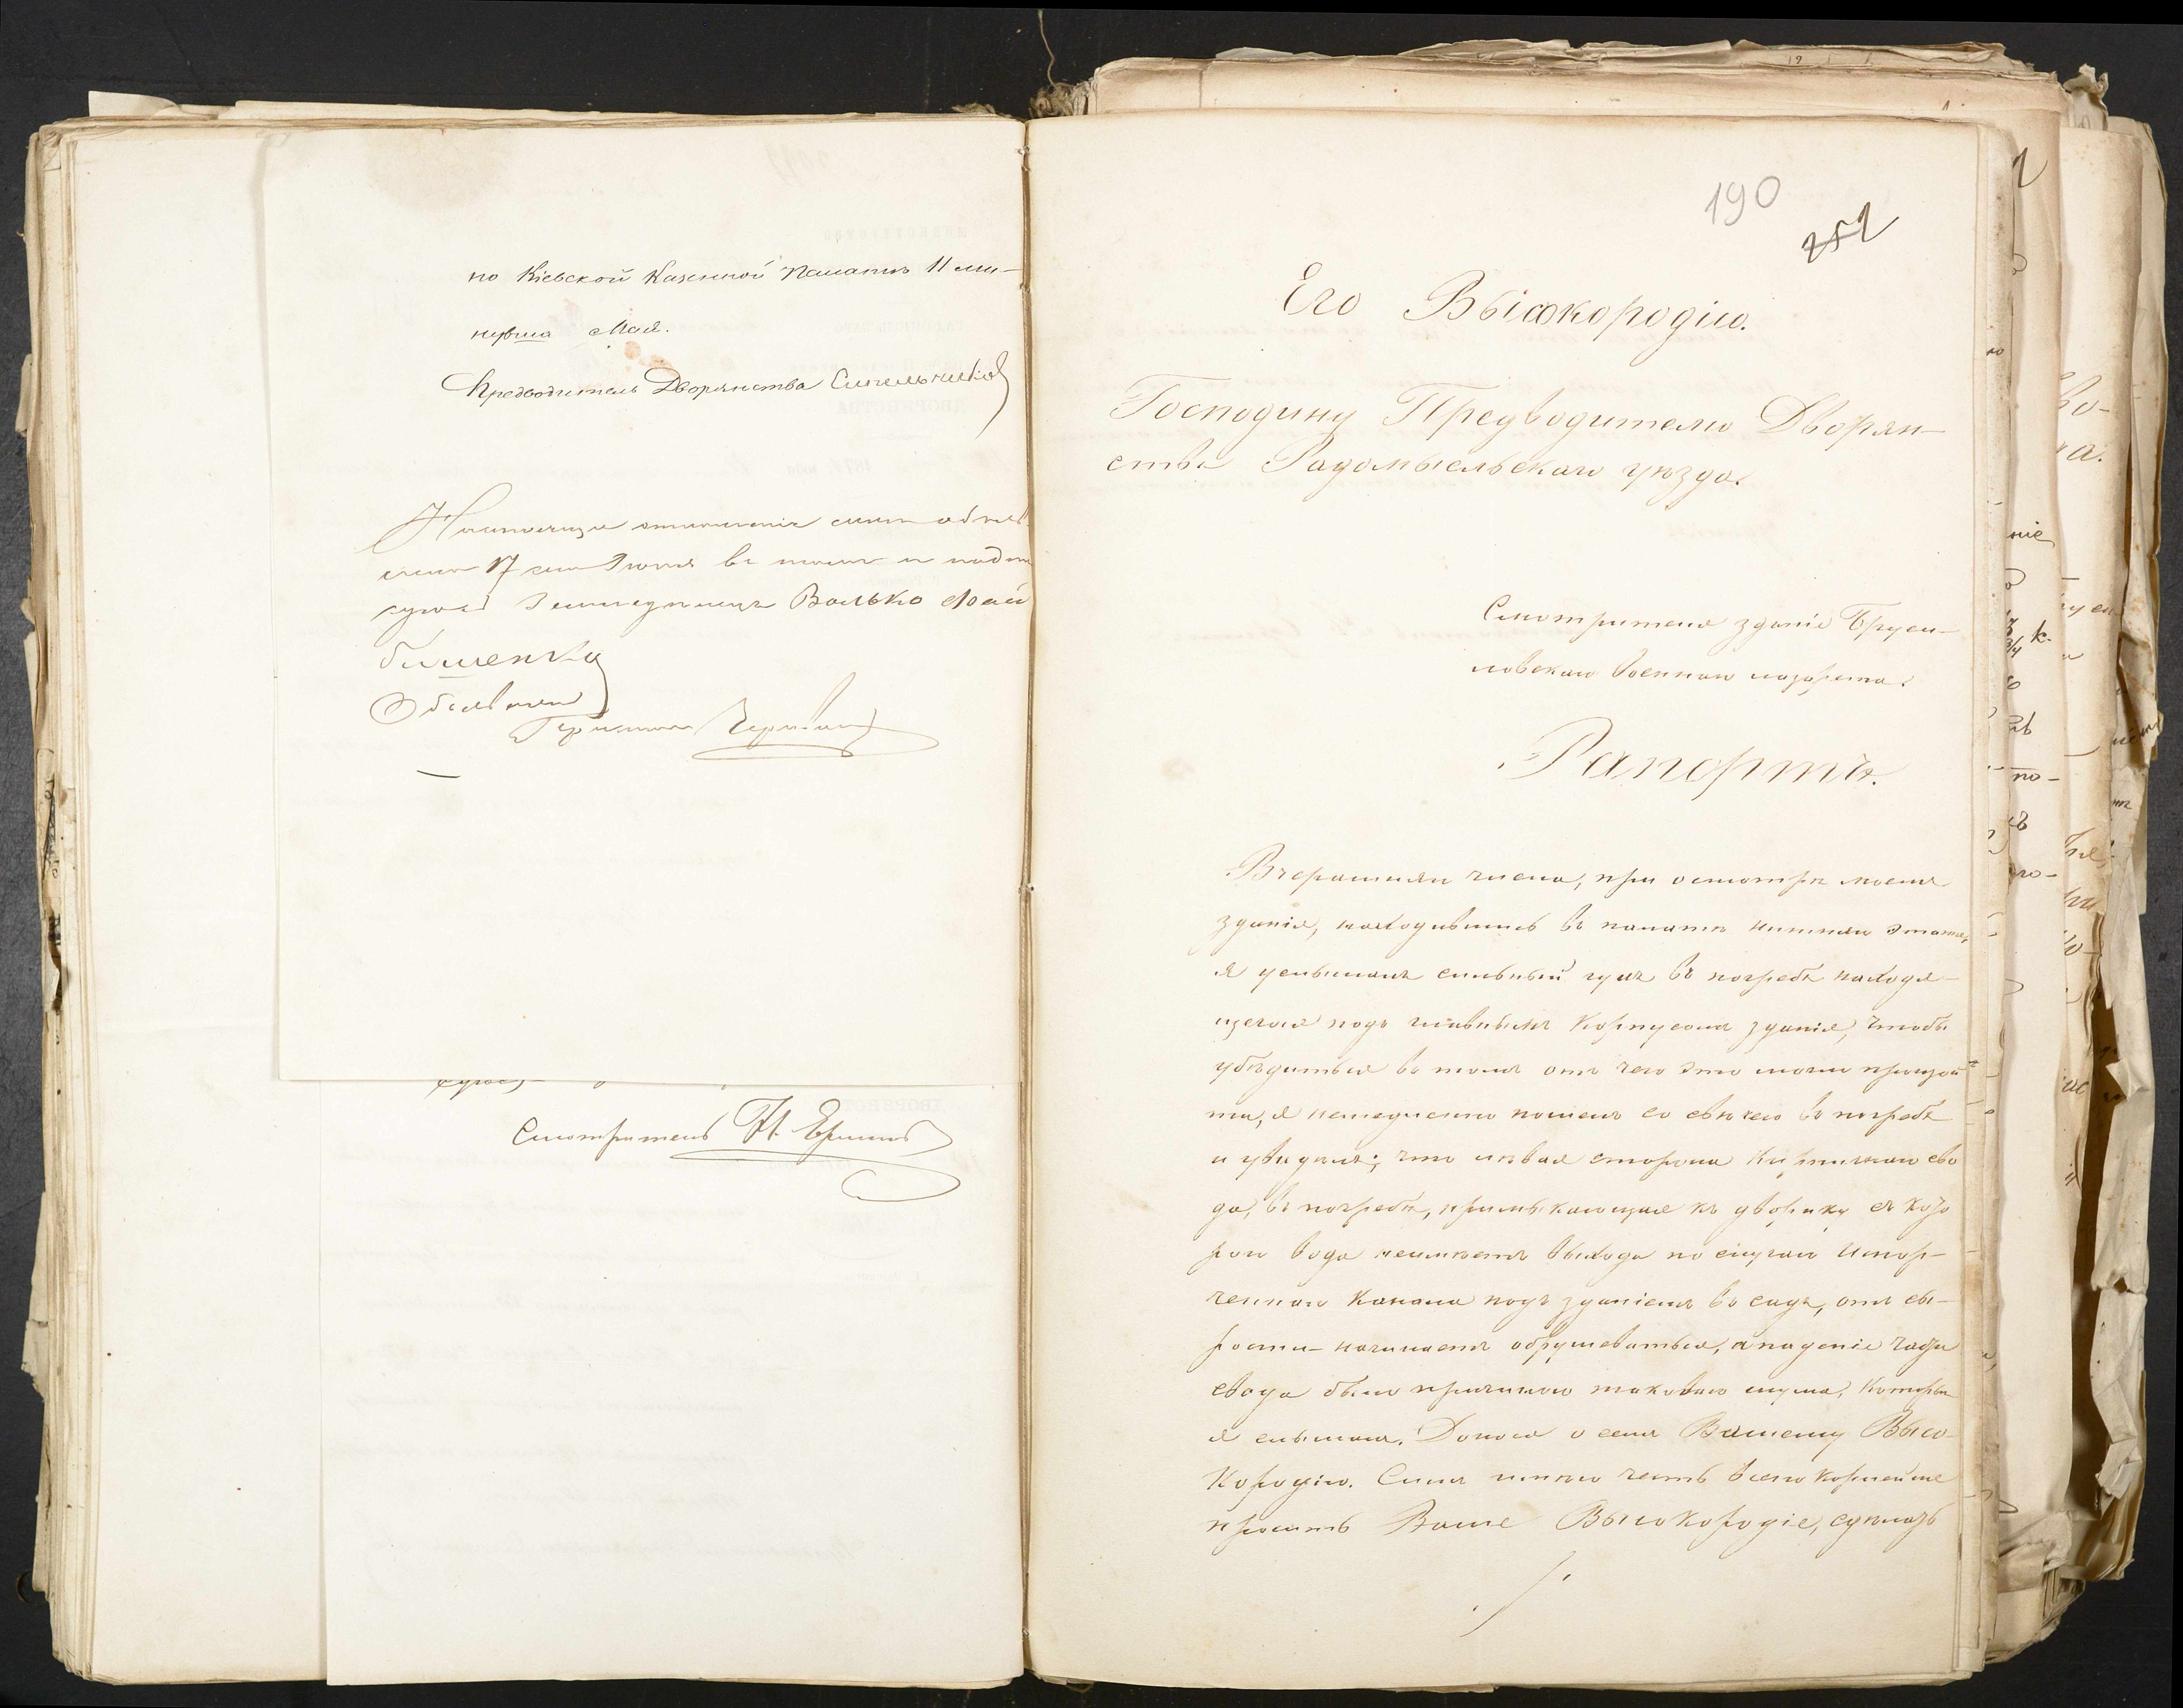 по Кіевской Казенной Палатѣ 11 ми-
нувша Мая.
Предводитель Дворянства
Настоящее отношеніе
17 Іюня въ томъ и
Волько
Объявилъ
Смотритель
190
252
Его Высокородію.
Господину Предводителю Дворян-
ства Радомысльскаго уѣзда.
Смотрителя зданія Бруси-
ловскаго военнаго лазарета.
Рапортъ.
Вчерашняго числа, при осмотрѣ моемъ
зданія, находившись въ палатѣ нижняго этажа,
я услышалъ сильный гулъ въ погребѣ находя-
щегося подъ главнымъ корпусомъ зданія, чтобы
убѣдиться въ томъ отъ чего это могло произой
ти, я немедленно пошелъ со свѣчею въ погребъ
и увидѣлъ; что лѣвая сторона кирпичнаго сво
да, въ погребѣ, примыкающая къ дворику съ кото
раго вода неимѣетъ выхода по случаю испор-
ченнаго канала подъ зданіемъ въ садъ, отъ сы-
рости начинаетъ обрушеваться, а паденіе части
свода было причиною таковаго шума, которы
я слышалъ. Донося о семъ Вашему Высо-
кородію. Симъ имѣю честь всепокорнѣйше
просить Ваше Высокородіе, сдѣлать